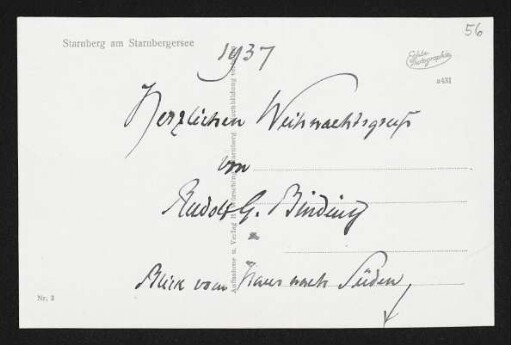 56
Starnberg am Starnbergersee
1937
Echte Photographie
a431
Herzlichen Weihnachtsgruß
von
Rudolf G. Binding
Blick vom Haus nach Süden
Nr. 3
Aufnahme u. Verlag